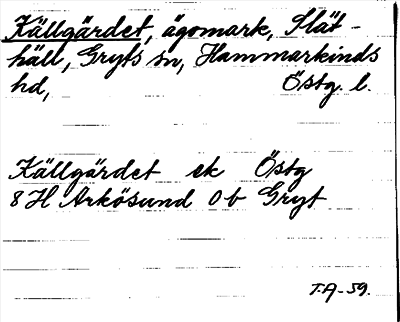 Källgärdet, ägomark, Slät-
häll, Gryts sn, Hammarkinds
hd, Östg. l.
Källgärdet ek Östg
8 H Arkösund 0 b Gryt
T.A-59.